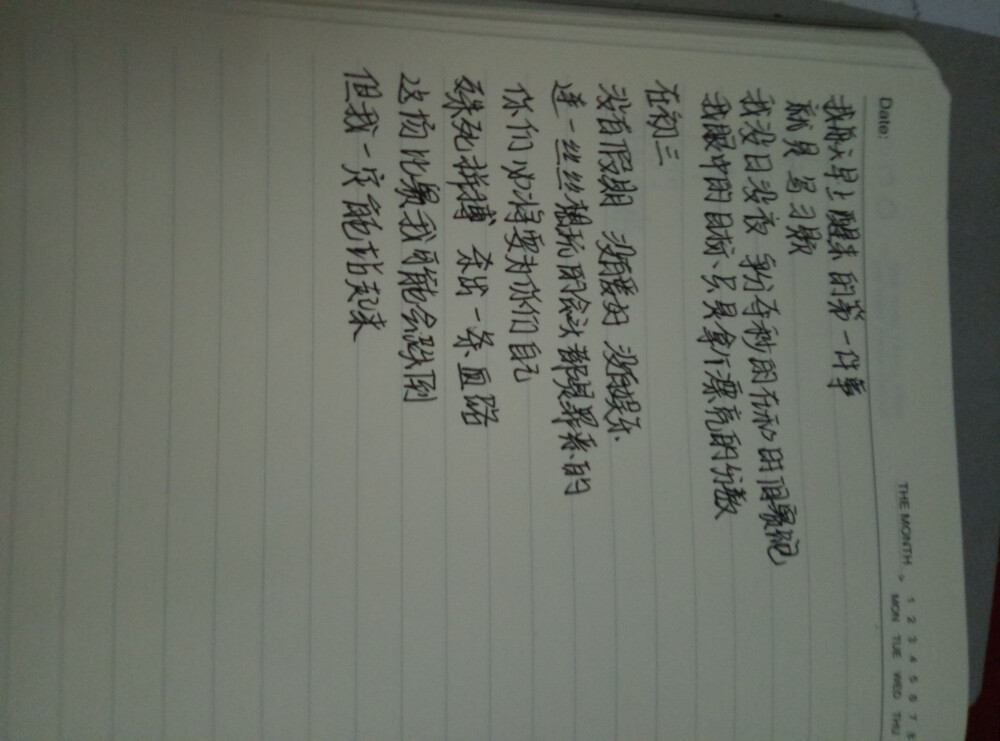 Date:
THE MONTH > 1 2 3 4 5 6 7 8
MON TUE WED THU
我每天早上醒来的第一件事
就是 写习题
我没日没夜 争分夺秒的在和时间赛跑
我眼中的目标、只是拿个漂亮的分数
在初三
没有假期 没有爱好 没有娱乐
连一丝丝想玩的念头都是罪恶的
你们必将要为你们自己
殊死拼搏 杀出一条血路
这场比赛我可能会跌倒
但我一定能站起来